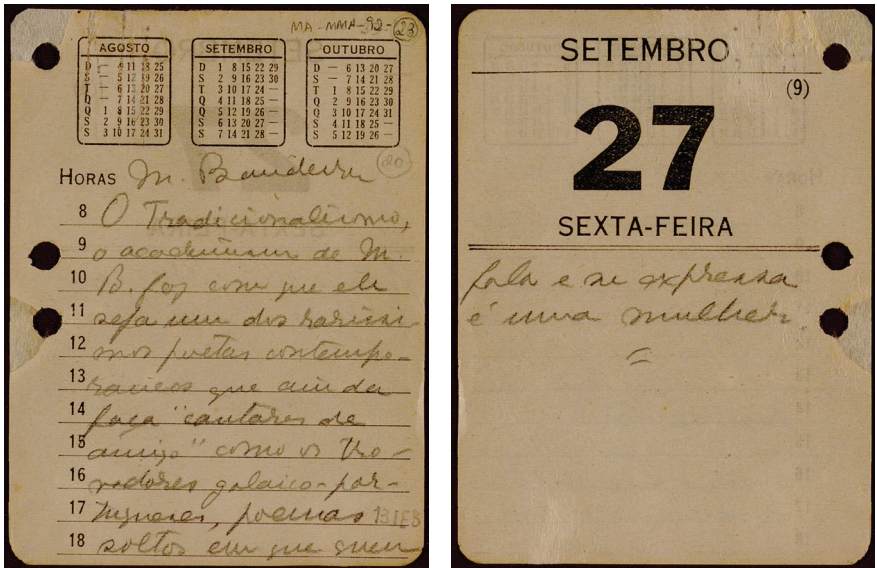 MA-MMA-92-23
AGOSTO
D — 4 11 18 25
S — 5 12 19 26
T — 6 13 20 27
Q — 7 14 21 28
Q 1 8 15 22 29
S 2 9 16 23 30
S 3 10 17 24 31
SETEMBRO
D 1 8 15 22 29
S 2 9 16 23 30
T 3 10 17 24 —
Q 4 11 18 25 —
Q 5 12 19 26 —
S 6 13 20 27 —
S 7 14 21 28 —
OUTUBRO
D — 6 13 20 27
S — 7 14 21 28
T 1 8 15 22 29
Q 2 9 16 23 30
Q 3 10 17 24 31
S 4 11 18 25 —
S 5 12 19 26 —
20
HORAS M. Bandeira
8 O Tradicionalismo,
9 o academismo de M.
10 B. faz com que ele
11 seja um dos raríssi-
12 mos poetas contempo-
13 raneos que ainda
14 faça "cantares de
15 amigo" como os tro-
16 vadores galaico-por-
17 tugueses, poemas IEB
18 soltos em que quem
SETEMBRO
(9)
27
SEXTA-FEIRA
fala e se expressa
é uma mulher.
=